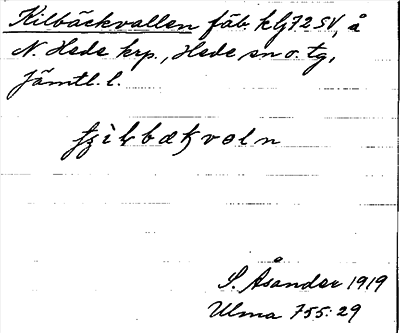 Kilbäckvallen fäb. klj 72 SV, å
N. Hede krp., Hede sn o. tg,
Jämtl. l.
S. Åsander 1919
Ulma 755:29